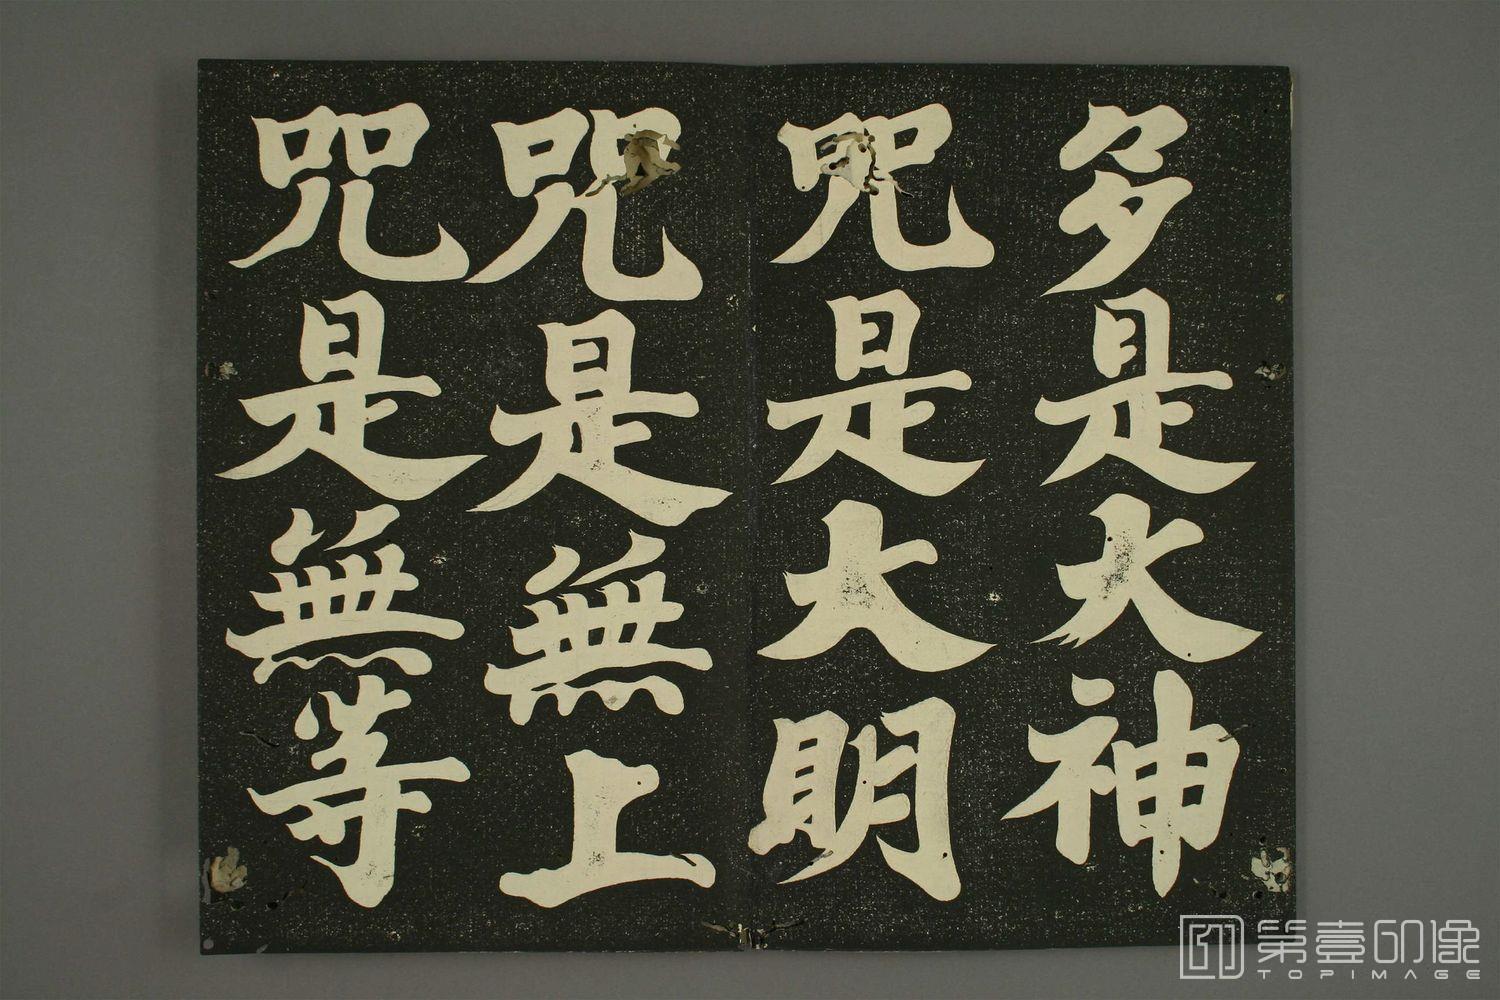 多是大神
咒是大明
咒是無上
咒是無等
第壹印像
TOPIMAGE